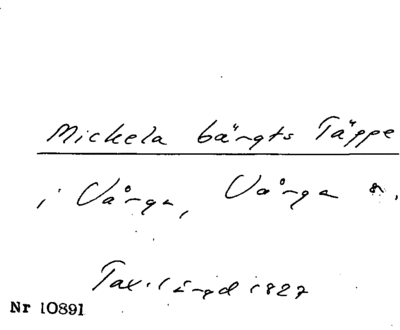 Mickela bängts Täppe
i Vånga, Vånga s.
Tax.längd 1827
Nr 10891